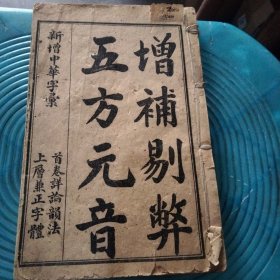 增補剔弊
五方元音
新增中華字彙
首卷詳論韻法
上層兼正字體